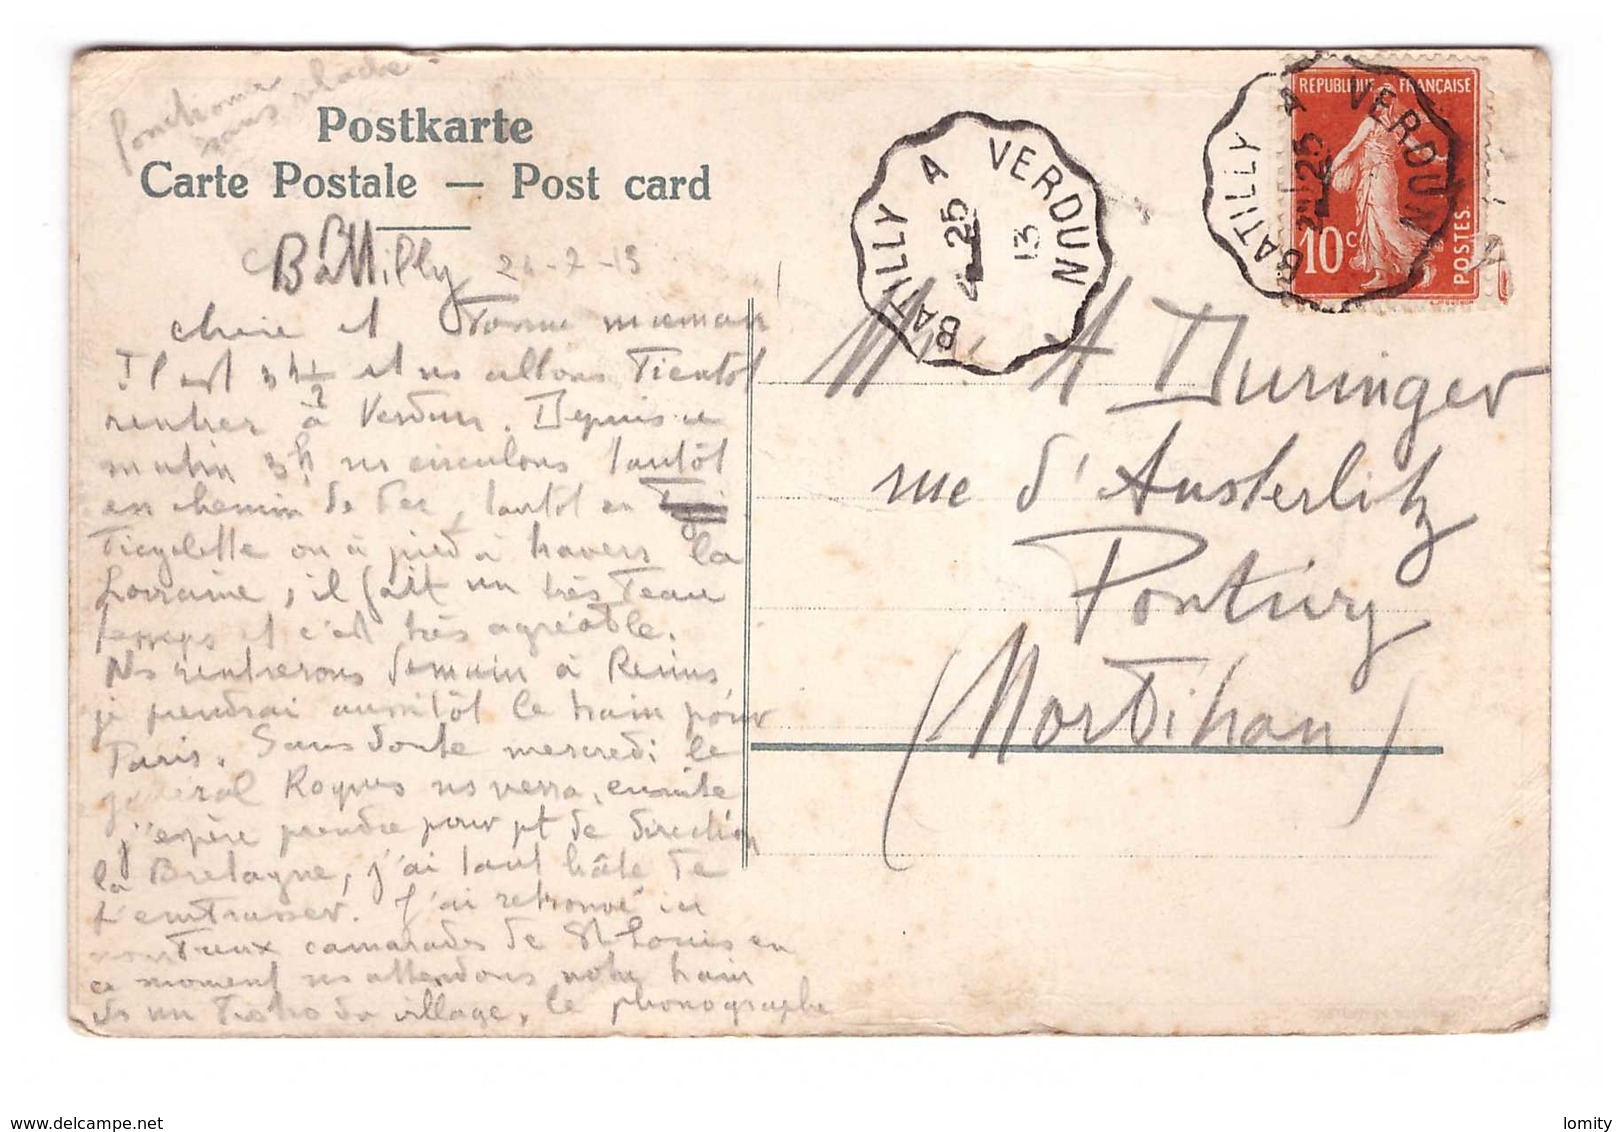 sans relache.
Postkarte
Carte Postale — Post card
Batilly 24-2-13
chère et bonne maman
Il est 3h 1/2 et ns allons bientôt
rentrer à Verdun. Depuis ce
matin 3h ns circulons tantôt
en chemin de fer, tantôt en
bicyclette ou à pied à travers la
Lorraine, il fait un très beau
temps et c'est très agréable.
Ns rentrerons demain à Reims,
je prendrai aussitôt le train pour
Paris. Sans doute mercredi le
général Roques ns verra, ensuite
j'espère prendre pour pt de direction
la Bretagne, j'ai tant hâte de
t'embrasser. J'ai retrouvé ici
nombreux camarades de St Louis en
ce moment ns attendons notre train
ds un bistro du village, le phonographe
BATILLY A VERDUN
25
13
BATILLY A VERDUN
25
RÉPUBLIQUE FRANÇAISE
10c
POSTES
A Duringer
rue d'Austerlitz
Pontivy
(Morbihan)
delcampe.net
lomity